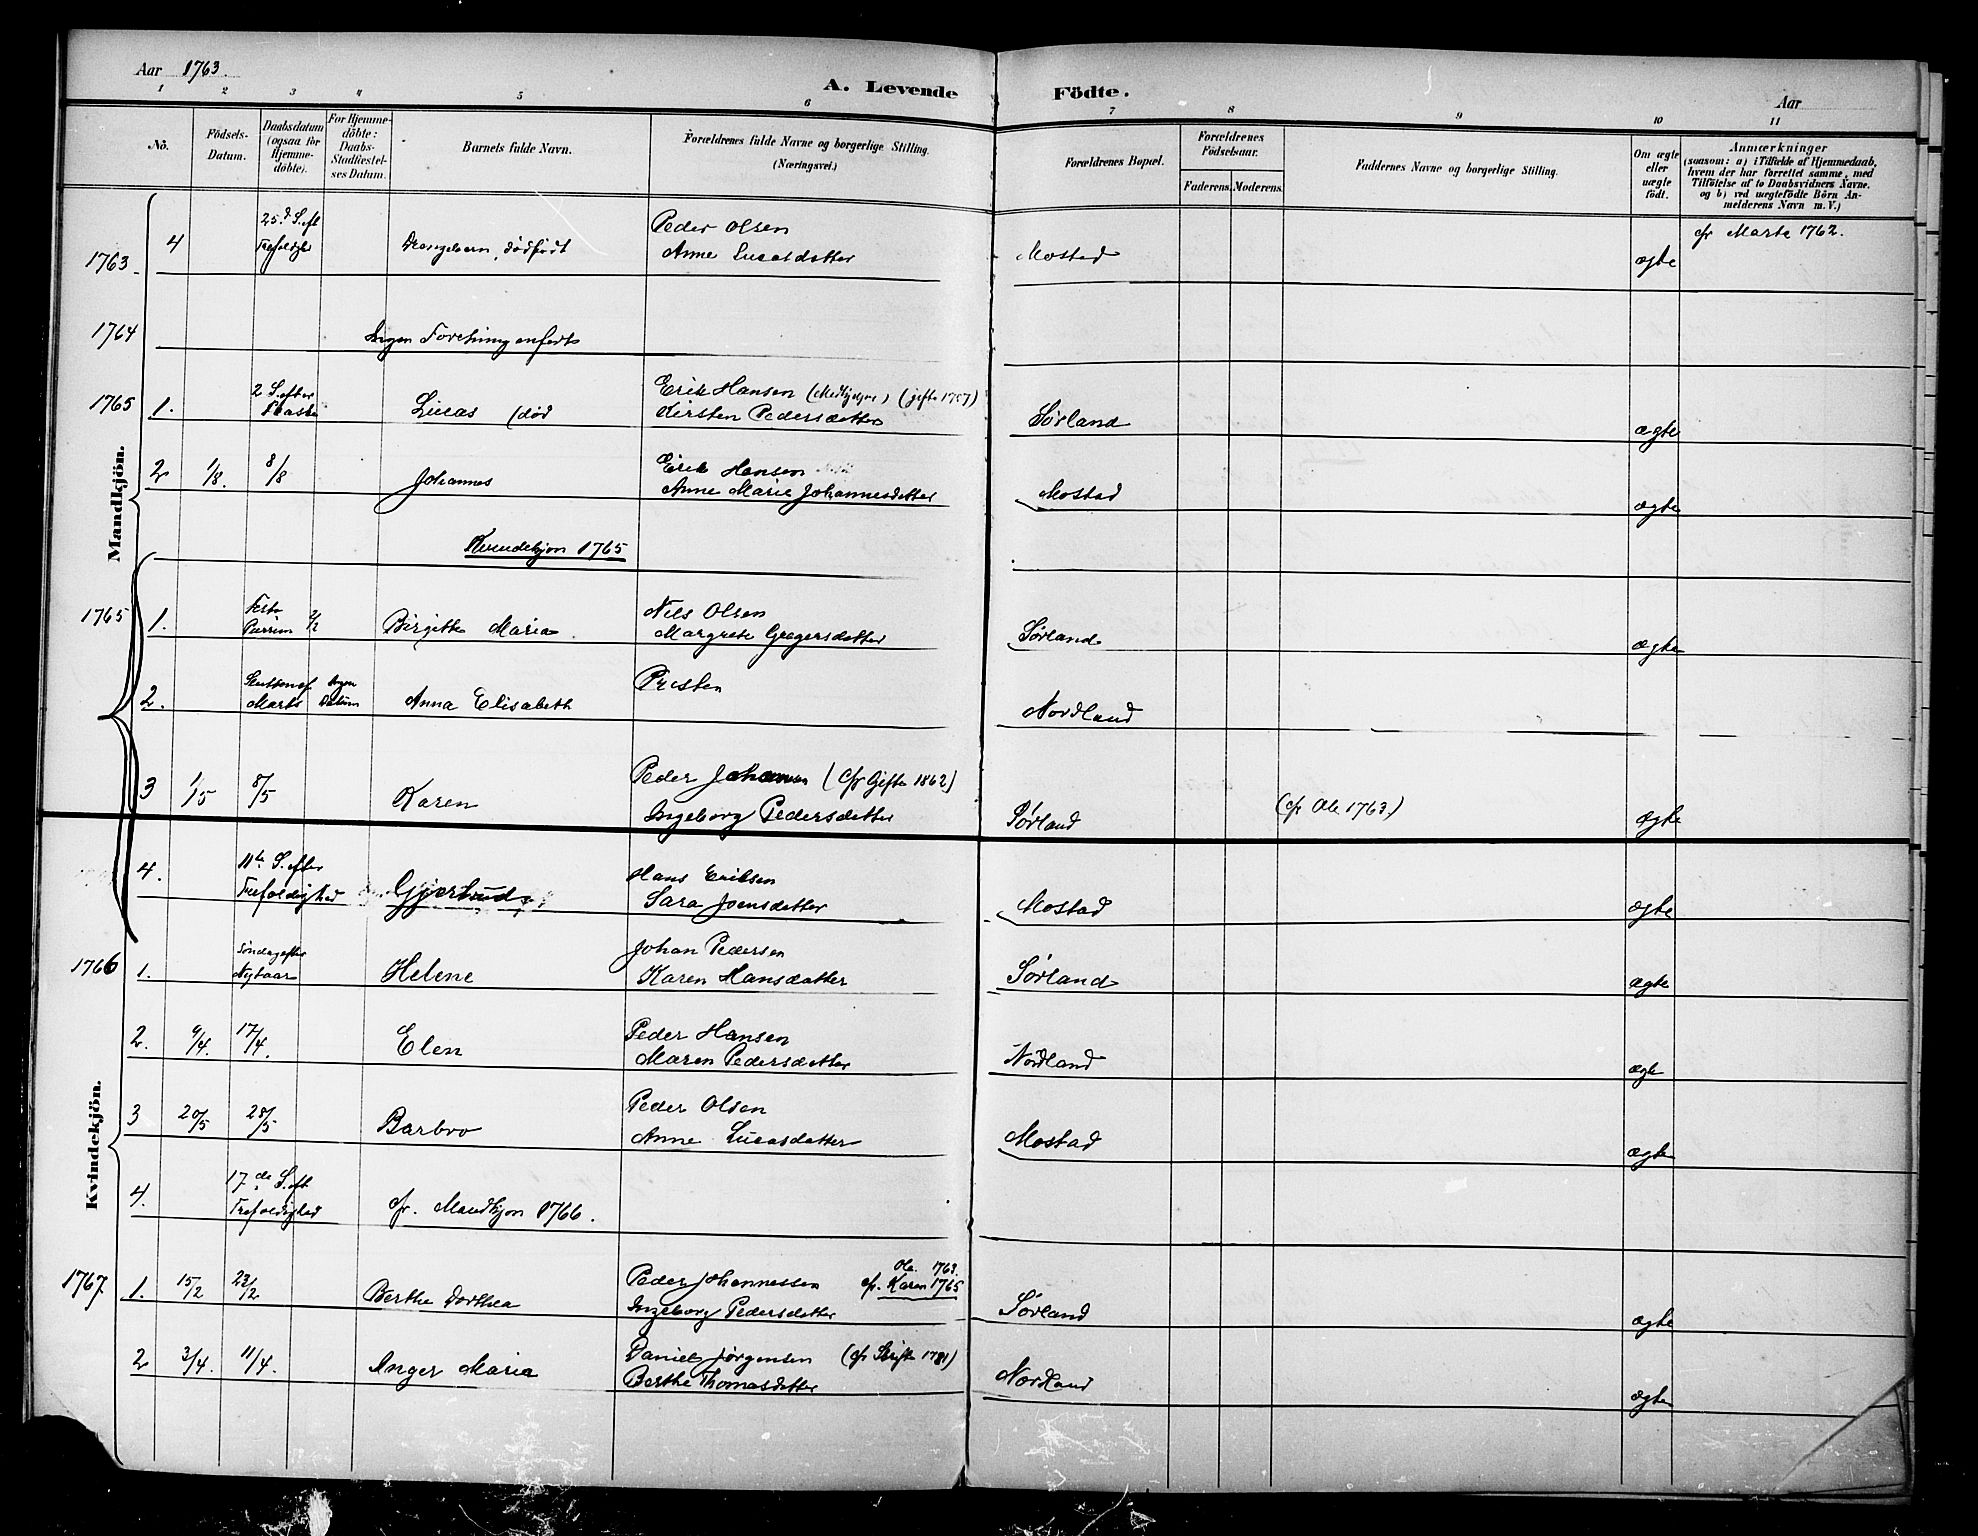 Aar 1763.
A. Levende Födte.
Aar
1 2 3 4 5 6 7 8 9 10 11
No.
Födsels-Datum.
Daabsdatum (ogsaa for Hjemmedöbte).
For Hjemmedöbte: Daabs-Stadfæstelses Datum.
Barnets fulde Navn.
Forældrenes fulde Navne og borgerlige Stilling. (Næringsvei.)
Forældrenes Bopæl.
Forældrenes Födselsaar.
Faderens. Moderens.
Faddernes Navne og borgerlige Stilling.
Om ægte eller uægte födt.
Anmærkninger (saasom: a) i Tilfælde af Hjemmedaab, hvem der har forrettet samme, med Tilföielse af to Daabsvidners Navne, og b) ved uægtefödte Börn Anmelderens Navn m. V.)
Mandkjön.
Kvindekjön.
1763. 4 25.d S. eft Trefoldigh Drengebarn, dødfødt Peder Olsen
Anne Lucasdatter Mostad ægte cfr Marta 1762.
1764 Ingen
1765 1. 2 S. efter Paaske Lucas (død Erik Hansen (gift 1757)
Kirsten Pedersdatter Sørland ægte
2 1/8. 8/8 Johannes Erik Hansen
Anne Marie Johannesdatter Mostad ægte
Kvindekjøn 1765
1765 1. Festo Purrim 2/2 Birgitte Maria Nils Olsen
Margrete Gregersdatter Sørland ægte
2. Slutten af Marts Ingen Datum Anna Elisabeth Presten
Nordland
3 1/5 8/5 Karen Peder Johannes (cfr Gifte 1862)
Ingeborg Pedersdatter Sørland (cfr Ole 1763.) ægte
4. 11te S. efter Trefoldighed Gjertrud Hans Eriksen
Sara Joensdatter Mostad ægte
1766 1. Søndag efter Nytaar Helene Johan Pedersen
Karen Hansdatter Sørland ægte
2. 9/4. 17/4. Elen Peder Hansen
Maren Pedersdatter Nordland ægte
3 20/5 28/5 Barbro Peder Olsen
Anne Lucasdatter Mostad ægte
4. 17.de S. eft Trefoldighed cfr. Mandkjøn 1766.
1767 1. 15/2 23/2 Berthe Dorthea Peder Johannessen cfr. Ole 1763. Karen 1765
Ingeborg Pedersdatter Sørland ægte
2 3/4. 11/4. Anger Maria Daniel Jørgensen (cfr Skifte 1781)
Berthe Thomasdatter Nordland ægte